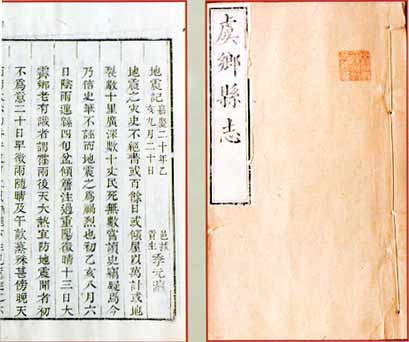 虞鄉縣志
地震記
嘉慶二十年乙
亥九月二十日
邑拔
貢生
李元
地震之灾史不絕書或百餘日或傾屋以萬計或地
裂數十里廣深數十丈民死無數嘗讀史竊疑爲今
乃信史筆不誣而地震之爲禍烈也初乙亥八月六
日陰雨連緜四旬盆傾簷注過重陽微晴十三日大
霽鄉老有識者謂霪雨後天大熱宜防地震聞者初
不爲意二十日早微雨隨晴及午歊蒸殊甚傍晚天